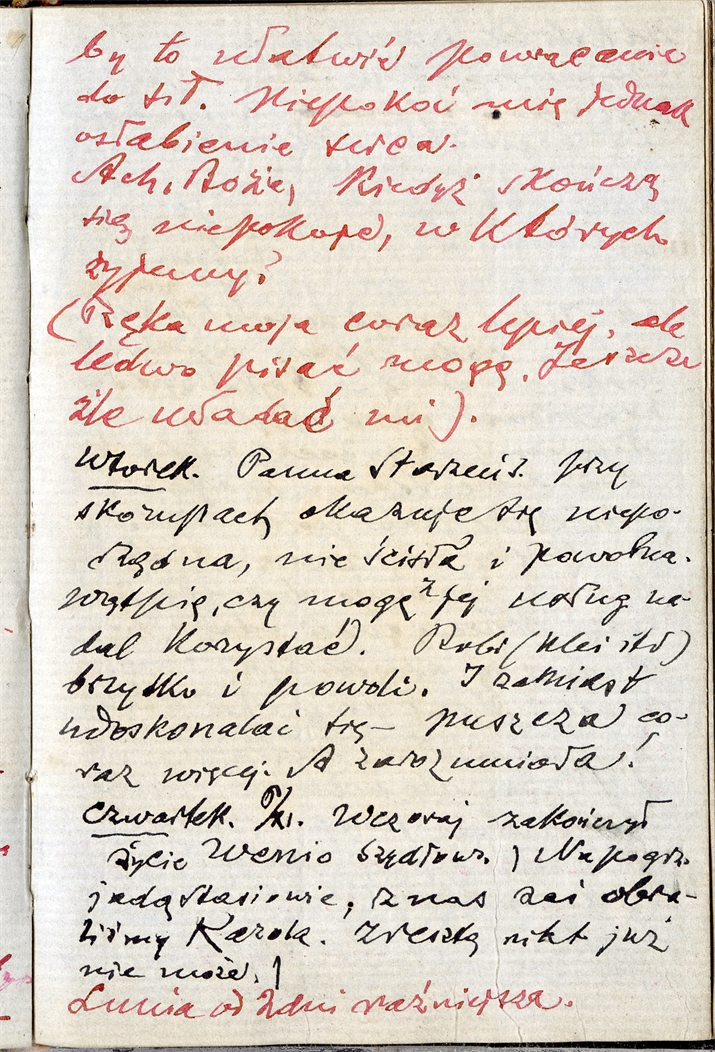 by to ułatwić powracanie
do sił. Niepokoi mię jednak
osłabienie serca.
Ach, Boże, Kiedyż skończą
się niepokoje, w których
żyjemy?
(Ręka moja coraz lepiej, ale
ledwo pisać mogę. Jeszcze
źle władać mi).
Wtorek. Panna Starzeńs. przy
skorupach okazuje się niepo-
rządna, nie ścisła i powolna.
Wątpię, czy mogę z jej usług na-
dal korzystać). Robi (klei itd)
brzydko i powoli. I zamiast
udoskonalać się – puszcza co-
raz więcej. A zarozumiała!
Czwartek. Wczoraj zakończył
życie Wenio Szydłows. ) Na pogrz.
jadą Stasiowie, z nas zaś obra-
liśmy Karola. Zresztą nikt już
nie może.)
Lunia od 2 dni raźniejsza.